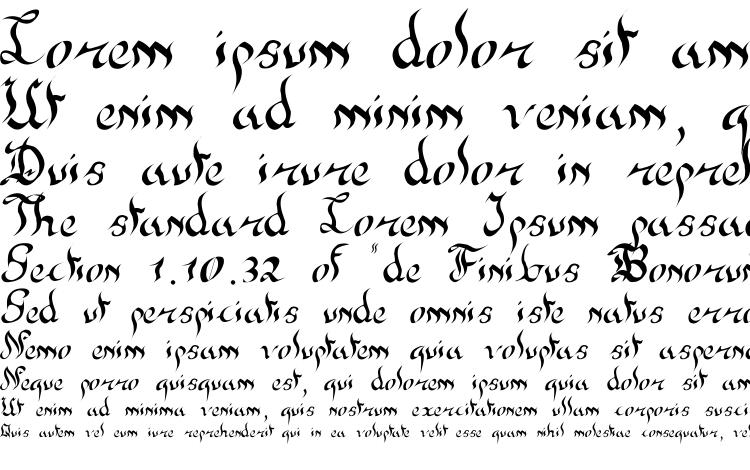 Lorem ipsum dolor sit am
Ut enim ad minim veniam, q
Duis aute irure dolor in repreh
The standard Lorem Ipsum passa
Section 1.10.32 of "de Finibus Bonoru
Sed ut perspiciatis unde omnis iste natus erro
Nemo enim ipsam voluptatem quia voluptas sit asperna
Neque porro quisquam est, qui dolorem ipsum quia dolor sit am
Ut enim ad minima veniam, quis nostrum exercitationem ullam corporis susci
Quis autem vel eum iure reprehenderit qui in ea voluptate velit esse quam nihil molestiae consequatur, vel